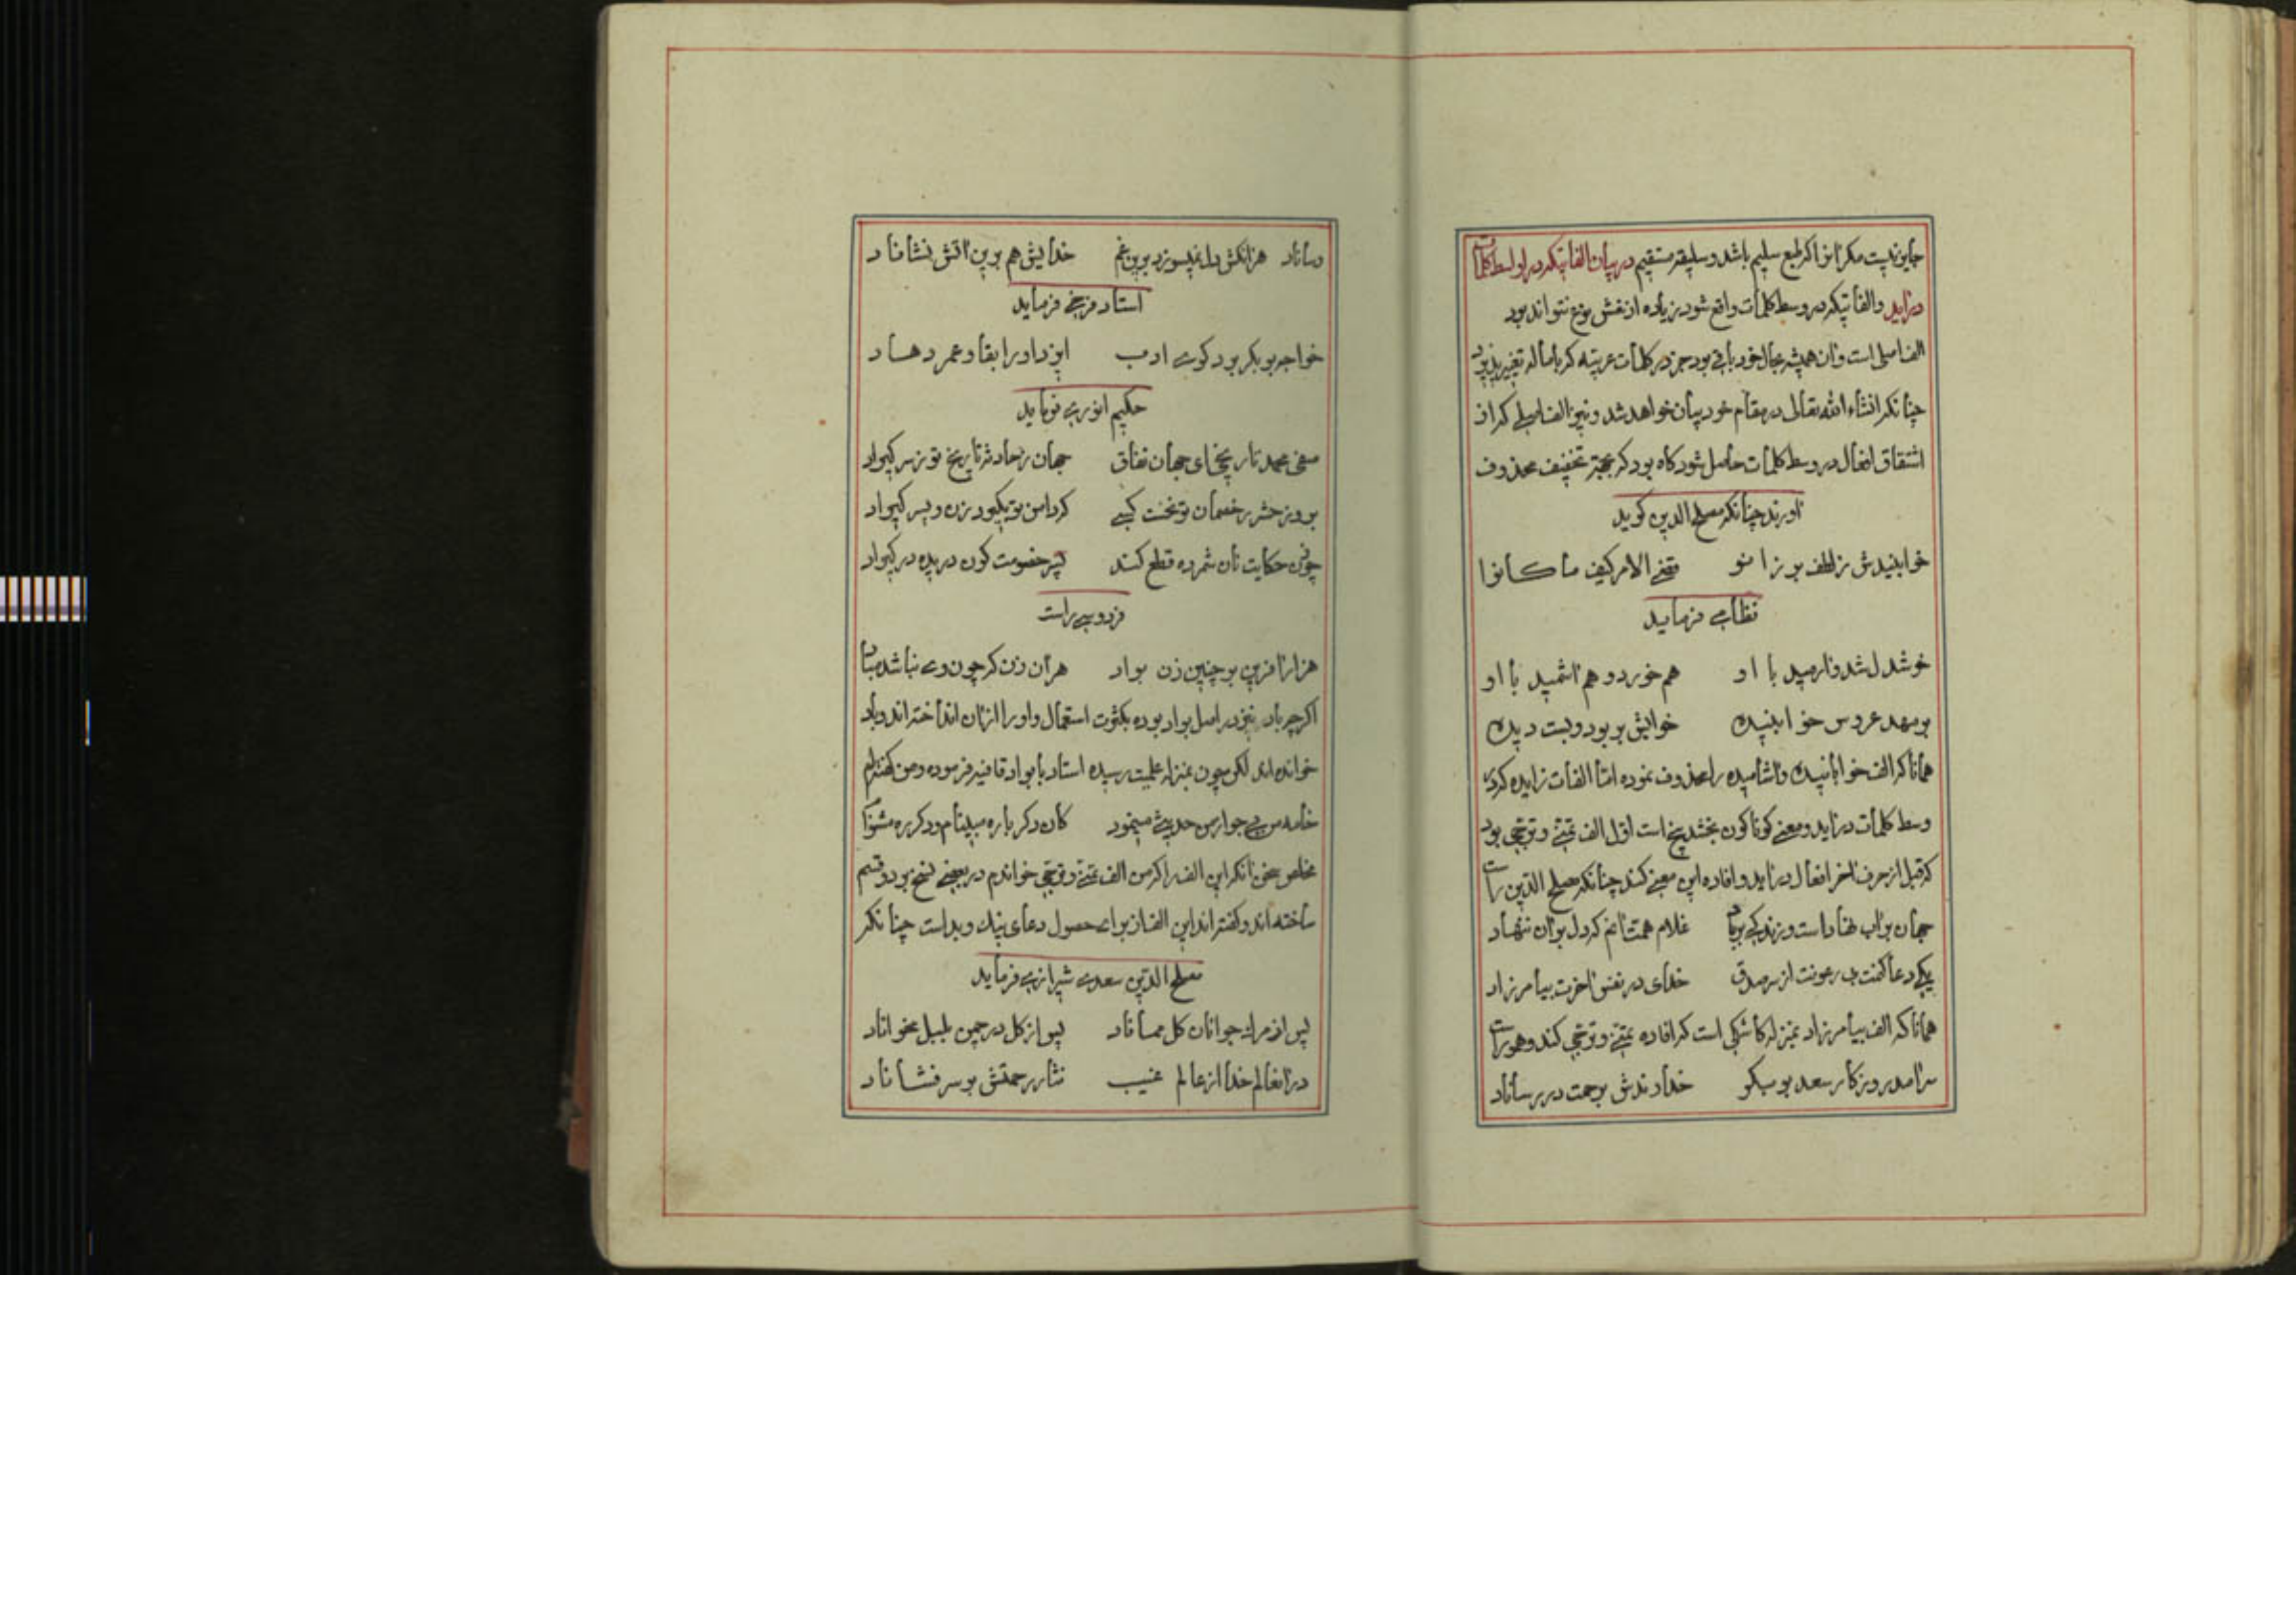 جایز نیست مکر آنرا که طبع سلیم باشد و سلیقه مستقیم در بیان الفاتیکه در اواسط کلمات
درآید والفاتیکه در وسط کلمات واقع شود زیاده از شش نوع نتواند بود
الف اصلی است وان همیشه بحال خود باقی بود جز در کلمات عربیه که باماله تغییر پذیرد
چنانکه انشاءالله تعالی در مقام خود بیان خواهد شد و نیز الف اصلی که از
اشتقاق افعال در وسط کلمات حاصل شود کاه بود که بجهة تخفیف محذوف
آورند چنانکه مصلح الدین کوید
خوابنیدش ز لطف بر زانو    قضی الامر کیف ما کانوا
نظامی فرماید
خوشدل شد و ارمید با او    هم خورد و هم اشمید با او
بر مهد عروس خوابنیده    خوابش بربود و بست دیده
همانا که الف خوابانیده واشامیده را محذوف نموده اما الفات زایده که در
وسط کلمات درآید و معنی کوناکون بخشد پنج است اول الف تمنی و ترجی بود
که قبل از حرف آخر افعال درآید و افاده این معنی کند چنانکه مصلح الدین راست
جهان بر آب نهاد است و زندکی بر باد    غلام همت آنم که دل بر آن ننهاد
یکی دعا کفمت بی رعونت از سر صدق    خدای در نفس آخرت بیامرزاد
همانا که الف بیامرزاد بمنزله کاشکی است که افاده تمنی و ترجی کند و هم او راست
سرآمد روزکار سعد بوبکر    خداوندش برحمت در رساناد
رساناد هر آنکش دل نمیسوزد برین غم    خدایش هم برین آتش نشاناد
استاد فرخی فرماید
خواجه بوبکر بود کوی ادب    ایزد او را بقا و عمر دهاد
حکیم انوری فرماید
صفی محمد تاریخی ای جهان نفاق    جهان ز حادثه تاریخ تو ز سر کیراد
بروز حشر ز خصمان تو نخست کسی    که دامن تو بکیرد زن و پسر کیراد
چونی حکایت نان شمرده قطع کند    پسر خصومت کون دریده در کیراد
فردوسی راست
هزار آفرین بر چنین زن بواد    هر آن زن که چون وی نباشد مباد
اکرچه باد نیز در اصل بواد بوده بکثرت استعمال واو را از آن انداخته اند و باد
خوانده اند لکن چون بمنزله علمیت رسیده استاد با بواد قافیه فرموده و من کفته ام
خامه من بی جواز من حدیثی مینمود    کان دکر باره مبیناد و دکر ره مشنواد
مخلص سخن آنکه این الف را که من الف تمنی و ترجی خواندم در بعضی نسخ بر دو قسم
ساخته اند و کفته اند این الف از برای حصول دعای نیک و بد است چنانکه
مصلح الدین سعدی شیرازی فرماید
پس از مرک جوانان کل مماناد    پس از کل در چمن بلبل مخواناد
در آنعالم خدا از عالم غیب    نثار رحمتش بر سر فشاناد